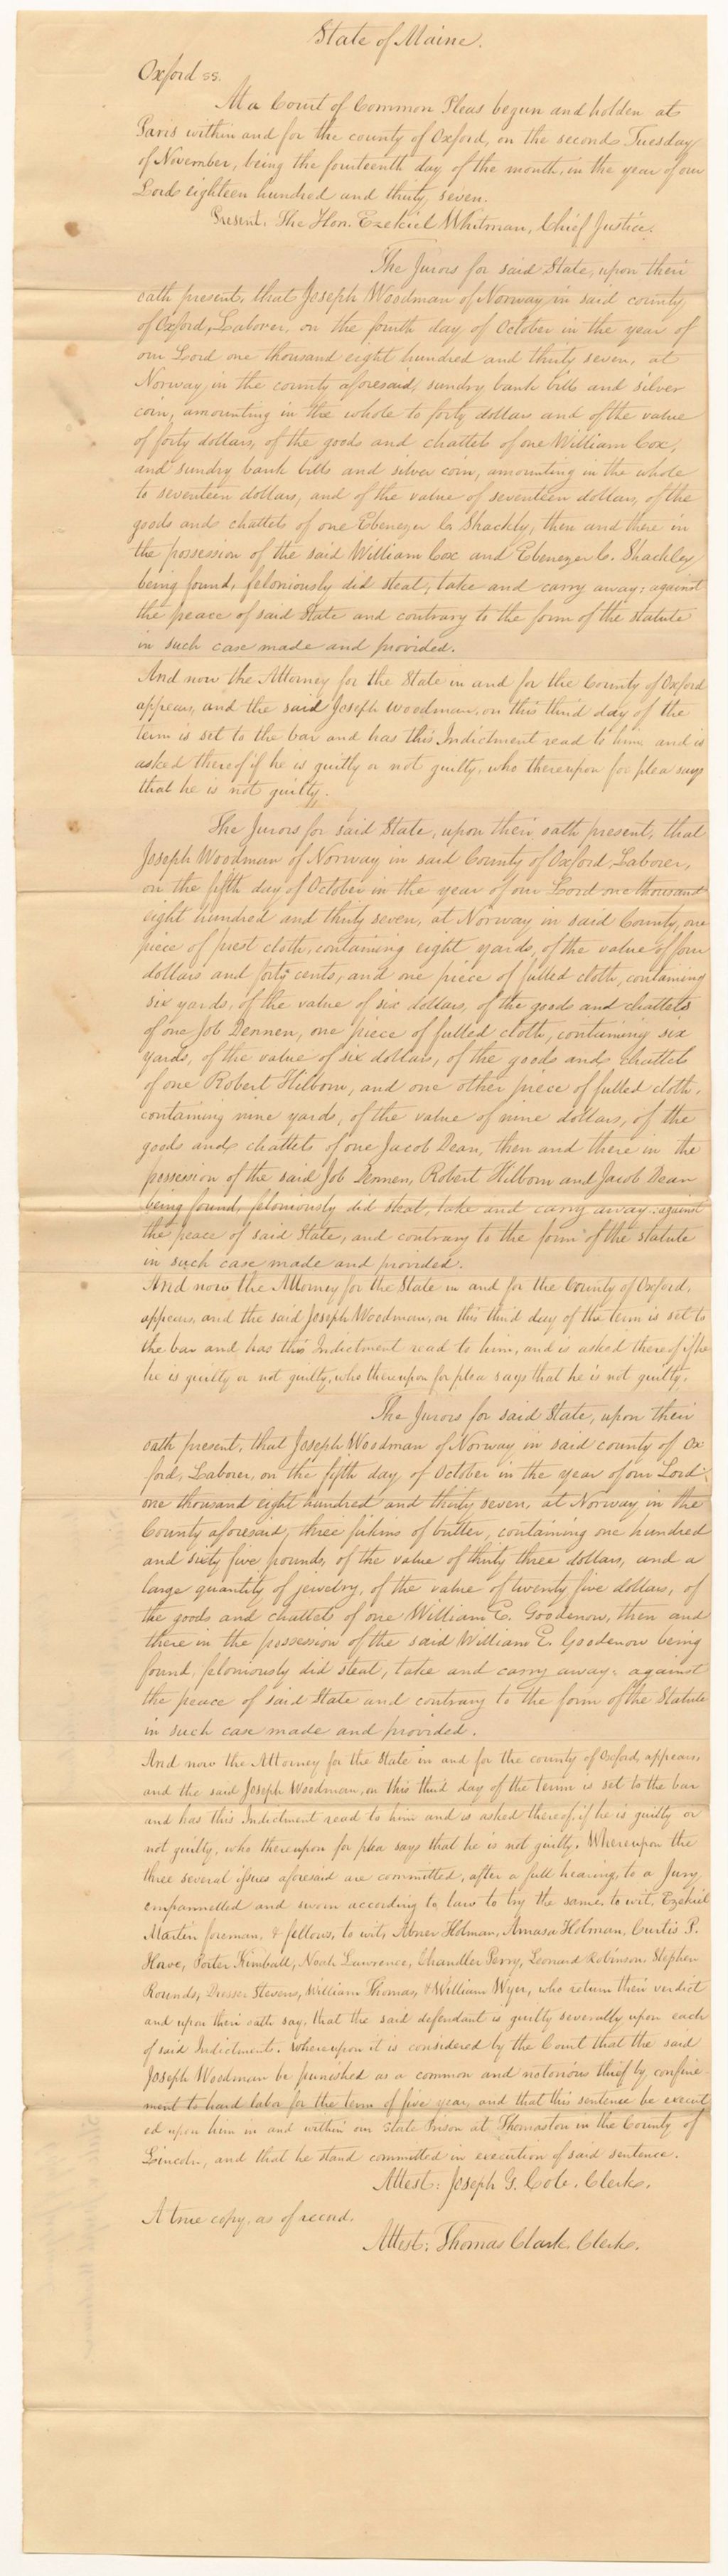 State of Maine.
Oxford ss.
At a Court of Common Pleas begun and holden at
Paris within and for the county of Oxford, on the second Tuesday
of November, being the fourteenth day of the month, in the year of our
Lord eighteen hundred and thirty seven.
Present, The Hon. Ezekiel Whitman, Chief Justice.
The Jurors for said State, upon their
oath present, that Joseph Woodman of Norway in said county
of Oxford, Laborer, on the fourth day of October in the year of
our Lord one thousand eight hundred and thirty seven, at
Norway, in the county aforesaid, sundry bank bills and silver
coin, amounting in the whole to forty dollars and of the value
of forty dollars, of the goods and chattels of one William Cox,
and sundry bank bills and silver coin, amounting in the whole
to seventeen dollars, and of the value of seventeen dollars, of the
goods and chattels of one Ebenezer C. Shackly, then and there in
the possession of the said William Cox and Ebenezer C. Shackley
being found, feloniously did steal, take and carry away; against
the peace of said State and contrary to the form of the statute
in such case made and provided.
And now the Attorney for the State in and for the County of Oxford
appears, and the said Joseph Woodman, on this third day of the
term is set to the bar and has this Indictment read to him and is
asked thereof if he is guilty or not guilty, who thereupon for plea says
that he is not guilty.
The Jurors for said State, upon their oath present, that
Joseph Woodman of Norway in said County of Oxford Laborer,
on the fifth day of October in the year of our Lord one thousand
eight hundred and thirty seven, at Norway in said County, one
piece of prest cloth, containing eight yards, of the value of four
dollars and forty cents, and one piece of fulled cloth, containing
six yards, of the value of six dollars, of the goods and chattels
of one Job Dennen, one piece of fulled cloth, containing six
yards, of the value of six dollars, of the goods and chattels
of one Robert Hilborn, and one other piece of fulled cloth,
containing nine yards, of the value of nine dollars, of the
goods and chattels of one Jacob Dean, then and there in the
possession of the said Job Dennen, Robert Hilborn and Jacob Dean
being found, feloniously did steal, take and carry away: against
the peace of said State, and contrary to the form of the statute
in such case made and provided.
And now the Attorney for the State in and for the County of Oxford,
appears, and the said Joseph Woodman, on this third day of the term is set to
the bar and has this Indictment read to him, and is asked thereof if he
he is guilty or not guilty, who thereupon for plea says that he is not guilty.
The Jurors for said State, upon their
oath present, that Joseph Woodman of Norway in said county of Ox
ford, Laborer, on the fifth day of October in the year of our Lord
one thousand eight hundred and thirty seven, at Norway in the
County aforesaid, three firkins of butter, containing one hundred
and sixty five pounds, of the value of thirty three dollars, and a
large quantity of jewelry, of the value of twenty five dollars, of
the goods and chattels of one William E. Goodenow, then and
there in the possession of the said William E. Goodenow being
found, feloniously did steal, take and carry away: against
the peace of said State and contrary to the form of the Statute
in such case made and provided.
And now the Attorney for the State in and for the county of Oxford, appears,
and the said Joseph Woodman, on this third day of the term is set to the bar
and has this Indictment read to him and is asked thereof, if he is guilty or
not guilty, who thereupon for plea says that he is not guilty. Whereupon the
three several issues aforesaid are committed, after a full hearing, to a Jury
empannelled and sworn according to law to try the same, to wit, Ezekiel
Martin foreman, & fellows, to wit, Abner Holman, Amasa Holman, Curtis P.
Howe, Porter Kimball, Noah Lawrence, Chandler Perry, Leonard Robinson, Stephen
Rounds, Dresser Stevens, William Thomas, & William Wyer, who return their verdict
and upon their oath say, that the said defendant is guilty severally upon each
of said Indictment. Whereupon it is considered by the Court that the said
Joseph Woodman be punished as a common and notorious thief by confine-
ment to hard labor for the term of five year, and that this sentence be execut
ed upon him in and within our State Prison at Thomaston in the County of
Lincoln, and that he stand committed in execution of said sentence.
Attest: Joseph G. Cole, Clerk.
A true copy, as of record.
Attest: Thomas Clark, Clerk.